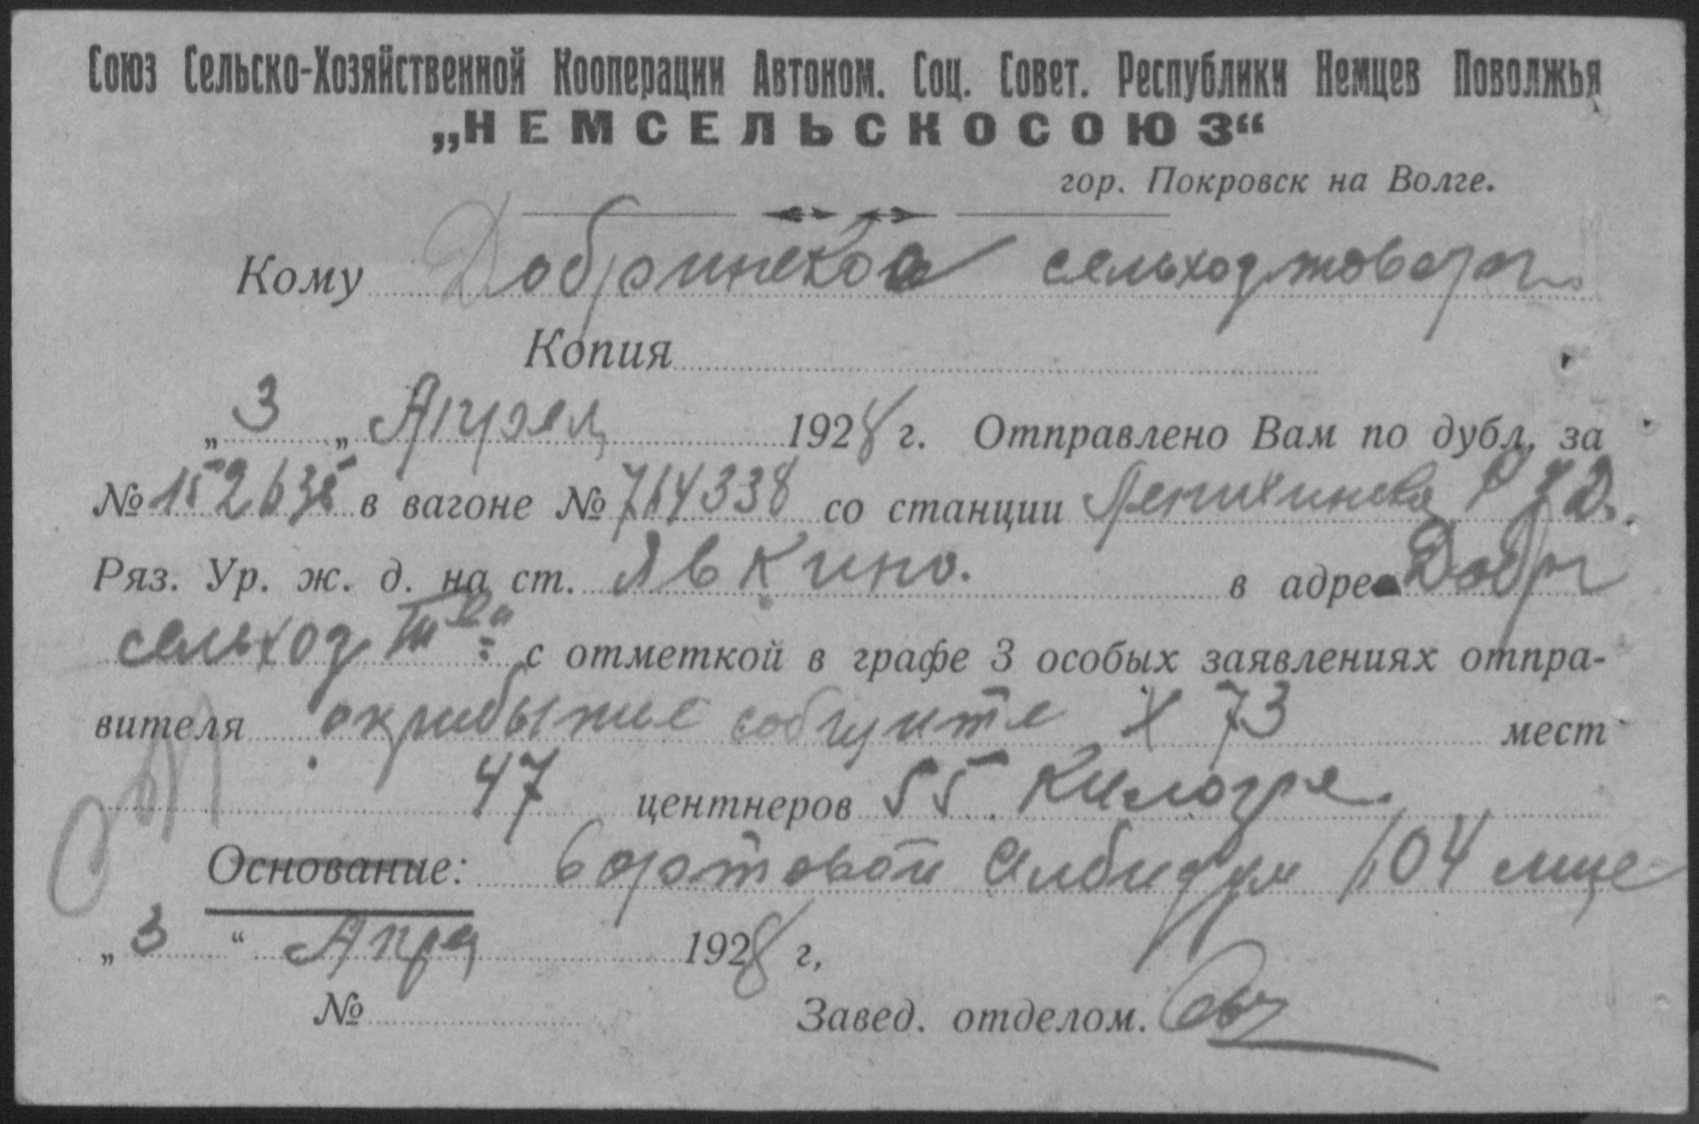 Союз Сельско-Хозяйственной Кооперации Автоном. Соц. Совет. Республики Немцев Поволжья
„НЕМСЕЛЬСКОСОЮЗ“
гор. Покровск на Волге.
Кому Добринское сельхоз товар
Копия
„3„ Апрел 1928 г. Отправлено Вам по дубл. за
№ 152635 в вагоне № 764338 со станции
Ряз. Ур. ж. д. на ст. Явкино. в адрес Добр
сельхоз тва с отметкой в графе 3 особых заявлениях отпра-
вителя о прибытие сообщите Х 73 мест
47 центнеров 55 Килогр.
Основание: 104
„3“ Апр 1928 г,
№ Завед. отделом.